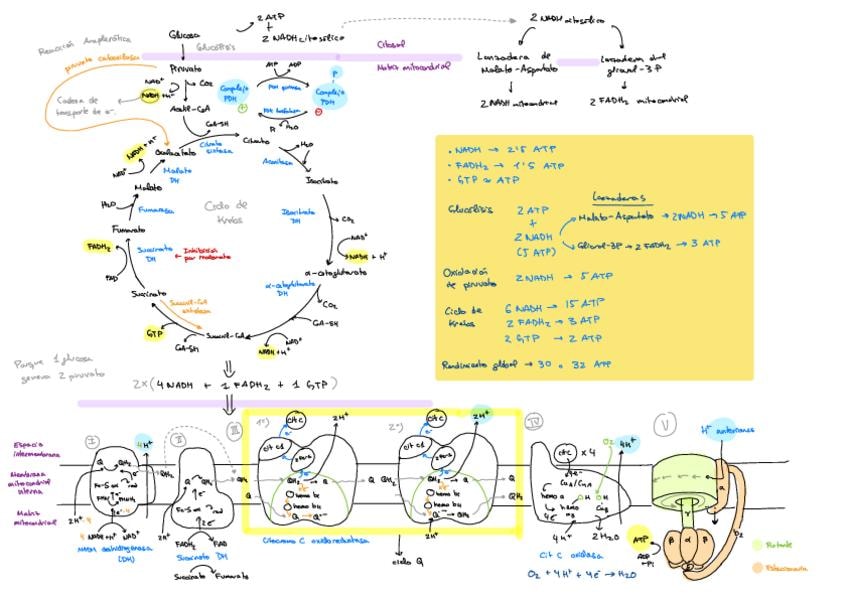 2 ATP
+
2 NADH citosólico
2 NADH citosólico
Reacción Anaplerótica
piruvato carboxilasa
Glucosa
Glucólisis
Citosol
Matriz mitocondrial
Lanzadera de
Malato-Aspartato
Lanzadera del
glicerol-3P
2 NADH mitocondrial
2 FADH₂ mitocondrial
Piruvato
NAD⁺
NADH + H⁺
CO₂
Cadena de
transporte de e⁻
Acetil-CoA
CoA-SH
Complejo
PDH
ATP
ADP
PDH quinasa
P
Complejo
PDH
H₂O
Oxalacetato
Citrato
sintasa
Citrato
Aconitasa
H₂O
Isocitrato
NADH + H⁺
NAD⁺
Malato
DH
Malato
H₂O
Fumarasa
Ciclo de
Krebs
Isocitrato
DH
CO₂
NAD⁺
NADH + H⁺
Fumarato
FADH₂
FAD
Succinato
DH
Inhibición
por malonato
α-cetoglutarato
α-cetoglutarato
DH
CO₂
CoA-SH
Succinato
Succinil-CoA
sintetasa
GTP
CoA-SH
Succinil-CoA
NAD⁺
NADH + H⁺
Porque 1 glucosa
genera 2 piruvato
2x (4 NADH + 1 FADH₂ + 1 GTP)
• NADH → 2'5 ATP
• FADH₂ → 1'5 ATP
• GTP ≈ ATP
Lanzaderas
Glucólisis
2 ATP
+
2 NADH
(5 ATP)
Malato-Aspartato → 2 NADH → 5 ATP
Glicerol-3P → 2 FADH₂ → 3 ATP
Oxidación
de piruvato
2 NADH → 5 ATP
Ciclo de
Krebs
6 NADH → 15 ATP
2 FADH₂ → 3 ATP
2 GTP → 2 ATP
Rendimiento global → 30 o 32 ATP
Espacio
intermembrana
Membrana
mitocondrial
interna
Matriz
mitocondrial
I
4H⁺
Q
QH₂
Fe-S
2H⁺
NADH + H⁺
NAD⁺
NADH deshidrogenasa
(DH)
II
QH₂
Q
QH₂
Fe-S
2e⁻
2H⁺
FADH₂
FAD
Succinato DH
Succinato
Fumarato
III
1º)
cit c
2H⁺
cit c1
QH₂ → Q
hemo bL
hemo bH
QH₂
Q
Citocromo C oxidoreductasa
2º)
cit c
2H⁺
cit c1
QH₂ → Q
hemo bL
hemo bH
2H⁺
ciclo Q
Q
QH₂
IV
cit c x 4
O₂
4H⁺
CuA/CuA
hemo a
hemo
a3
CuB
4e⁻
4H⁺
2H₂O
Cit C oxidasa
O₂ + 4H⁺ + 4e⁻ → H₂O
V
H⁺ anteriores
a
γ
b₂
β
α
β
ATP
ADP
+Pi
Rotante
Estacionaria